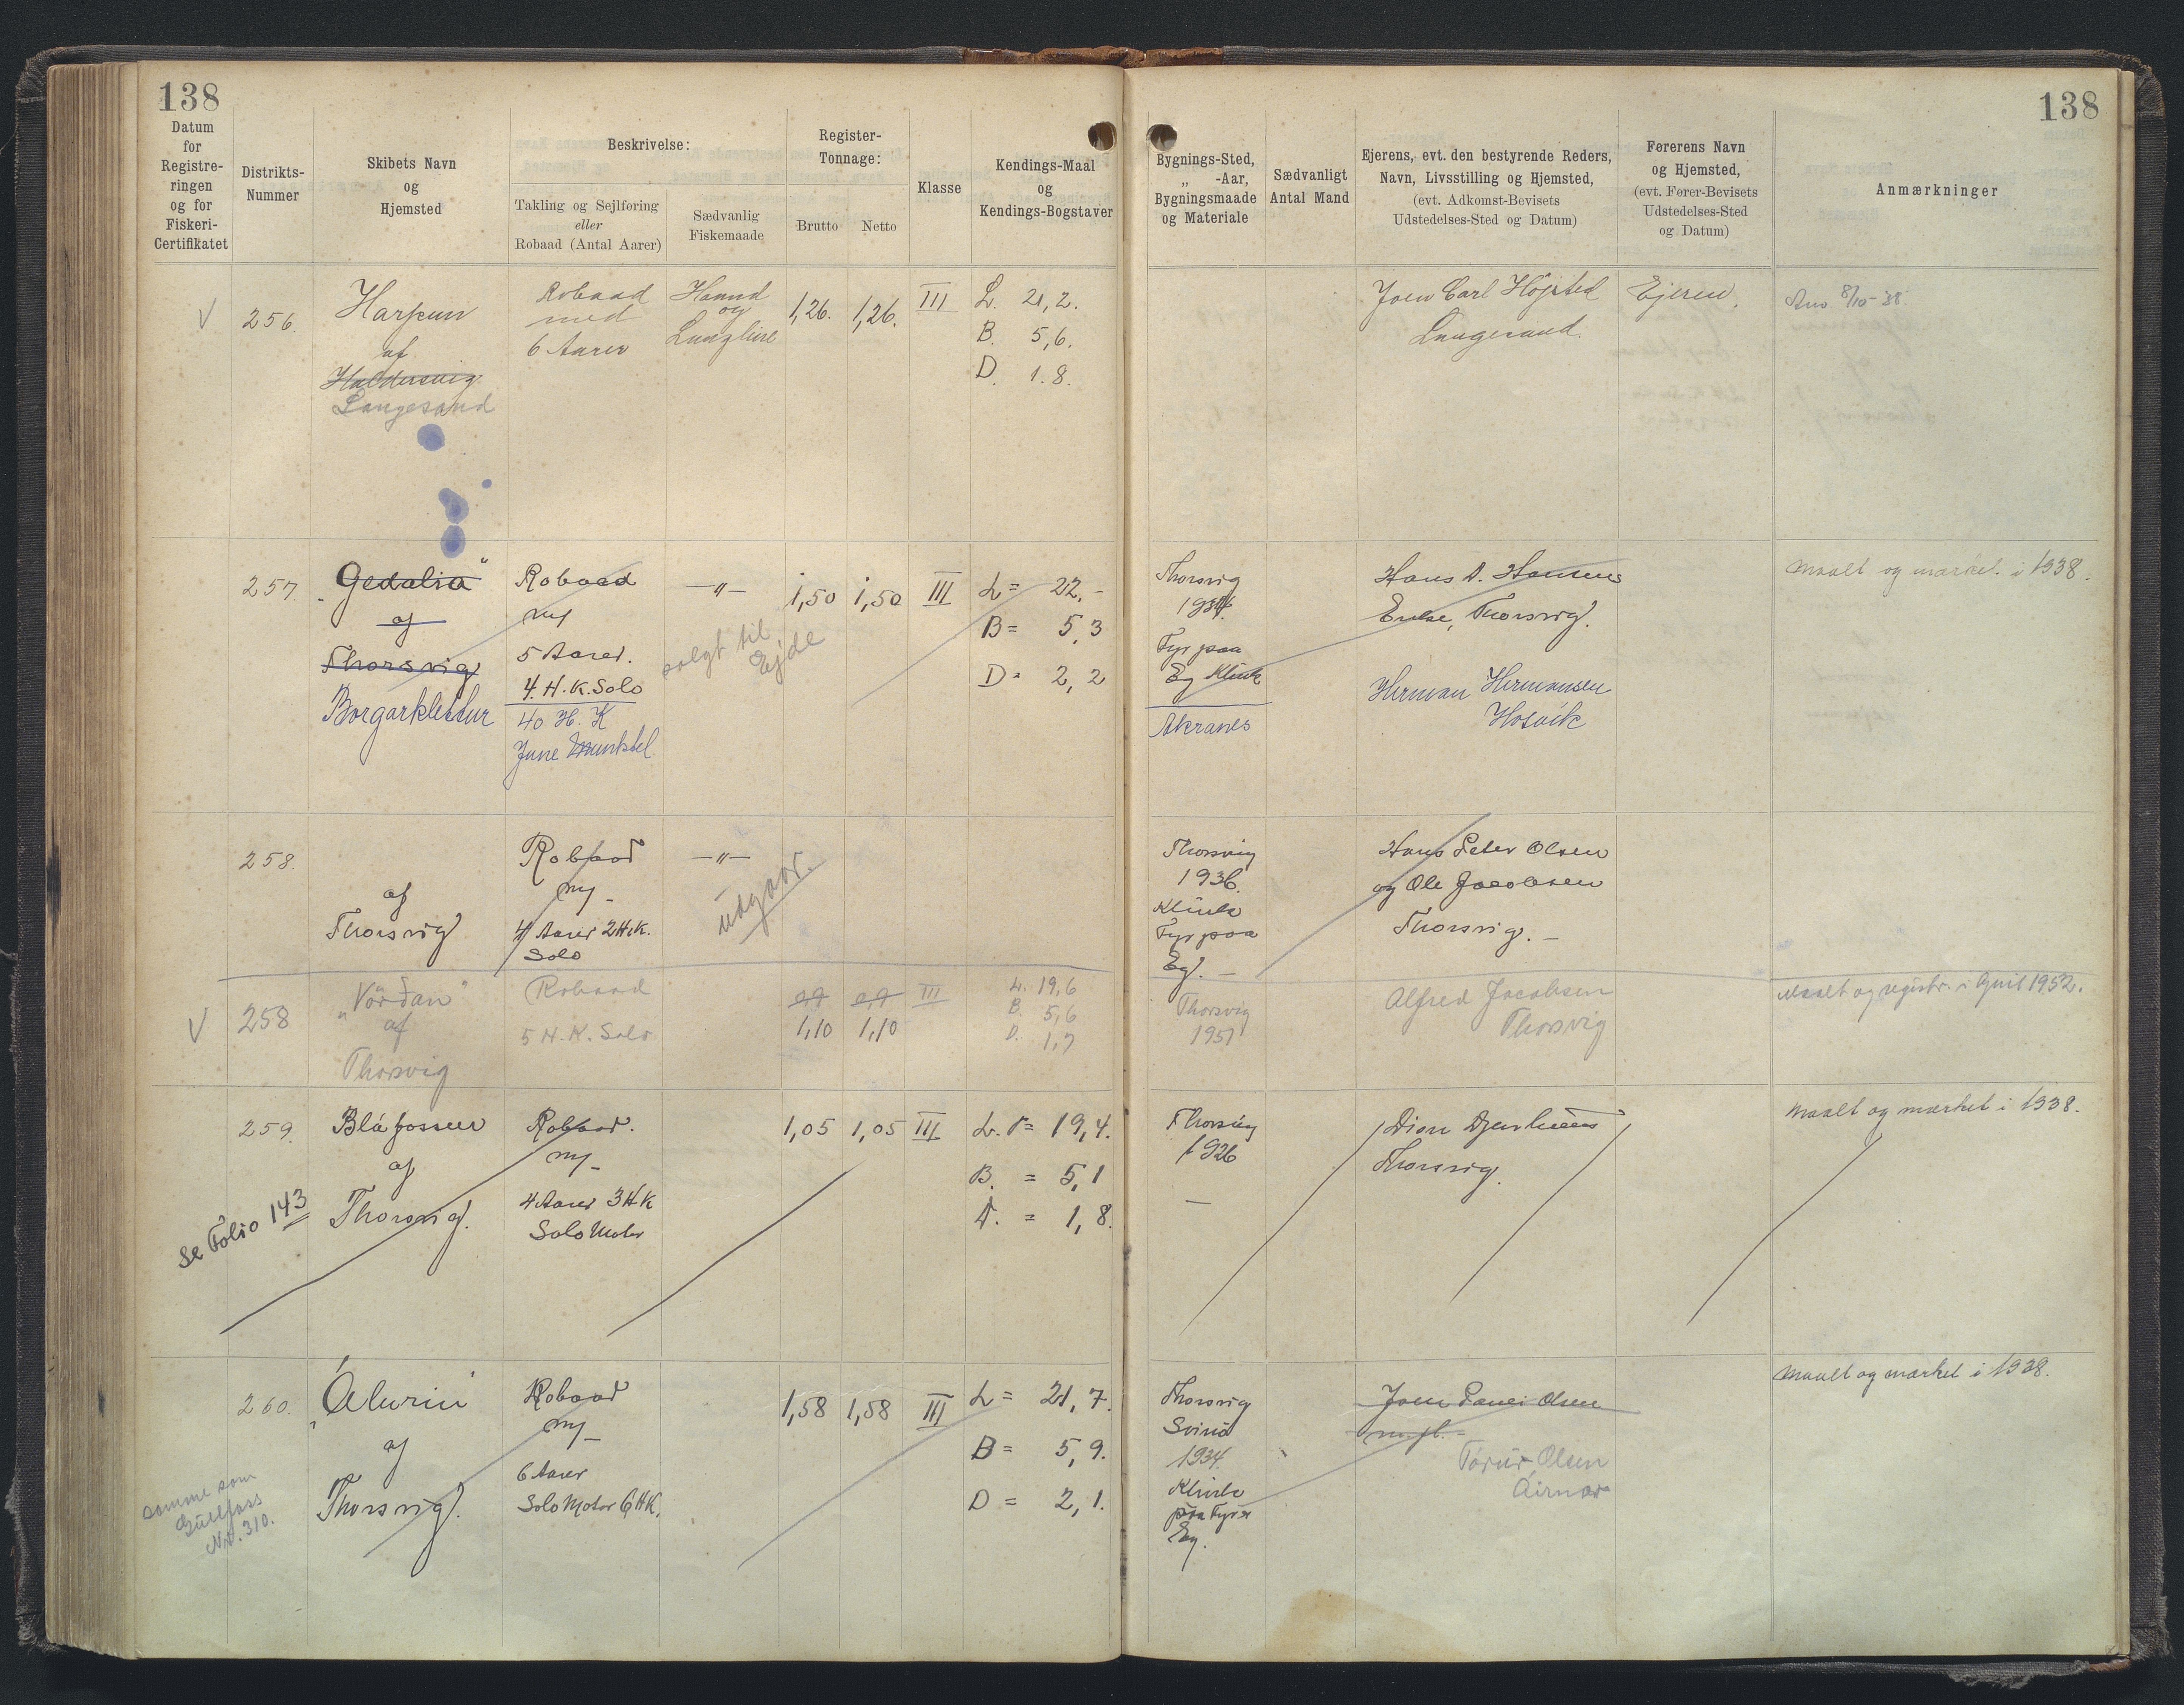 138
138
Datum
for
Registre-
ringen
og for
Fiskeri-
Certifikatet
Distrikts-
Nummer
Skibets Navn
og
Hjemsted
Beskrivelse:
Takling og Sejlføring
eller
Robaad (Antal Aarer)
Sædvanlig
Fiskemaade
Register-
Tonnage:
Brutto
Netto
Klasse
Kendings-Maal
og
Kendings-Bogstaver
Bygnings-Sted,
„ -Aar,
Bygningsmaade
og Materiale
Sædvanligt
Antal Mand
Ejerens, evt. den bestyrende Reders,
Navn, Livsstilling og Hjemsted,
(evt. Adkomst-Bevisets
Udstedelses-Sted og Datum)
Førerens Navn
og Hjemsted,
(evt. Fører-Bevisets
Udstedelses-Sted
og Datum)
Anmærkninger
V
256.
Harpun
af
Haldersvig
Langesand
Robaad
med
6 Aarer
Haand
og
Langline
1,26.
1,26.
III
L. 21,2.
B. 5,6.
D. 1.8.
Joen Carl Højsted
Langesand.
Ejeren.
8/10-38.
257.
„Gedalia“
af
Thorsvig
Borgarklettur
Robaad
ny
5 Aarer.
4. H.K. Solo
40 H. K
June Munktel
—〃—
solgt til
Ejde
1,50
1,50
III
L= 22.-
B= 5,3
D= 2,2
Thorsvig
1934.
Fyr paa
Eg Klink
Akranes
Hans D. Hansens
Enke, Thorsvig.
Herman Hermansen
Hosvik
Maalt og mærket. i 1938.
258.
af
Thorsvig
Robaad
ny -
4 Aarer 2 H.K.
Solo
—〃—
udgaar.
Thorsvig
1936.
Klink
Fyr paa
Eg. -
Hans Peter Olsen
og Ole Jacobsen
Thorsvig. -
V
258
„Vörðan“
af
Thorsvig
Robaad
5 H.K. Solo
1,10
1,10
III
L. 19,6
B. 5,6
D. 1,7
Thorsvig
1951
Alfred Jacobsen
Thorsvig
Maalt og registr. i April 1952.
259.
Bláfossur
af
Thorsvig.
Se Folio 143
Robaad.
ny -
4 Aarer 3 H.K
Solo Motor
1,05
1,05
III
L. = 19,4.
B. = 5,1
D. = 1,8.
Thorsvig
1926
—
Thorsvig.
Maalt og mærket i 1938.
260.
„Álurin“
af
Thorsvig.
samme som
Gullfoss
Nr. 310.
Robaad
ny -
6 Aarer
Solo Motor 6 HK.
1,58
1,58
III
L = 21,7.
B = 5,9.
D = 2,1.
Thorsvig
Svinö
1934.
Klink
paa Fyr &
Eg.
Olsen
m. fl. -
Olsen
Maalt og mærket i 1938.